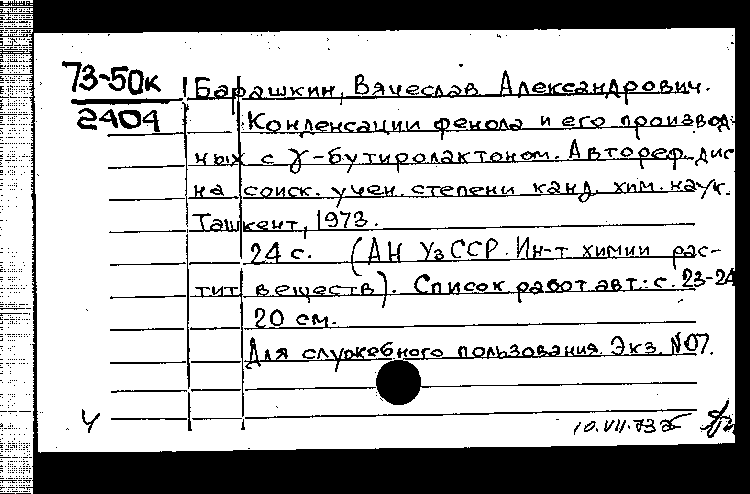 73-50к
2404
Барашкин, Вячеслав Александрович.
Конденсации фенола и его производ-
ных с γ-бутиролактоном. Автореф. дис
на соиск. учен. степени канд. хим. наук.
Ташкент, 1973.
24 с. (АН УзССР. Ин-т химии рас-
тит веществ). Список работ авт.: с. 23-24
20 см.
Для служебного пользования. Экз. №07.
10.VII.73